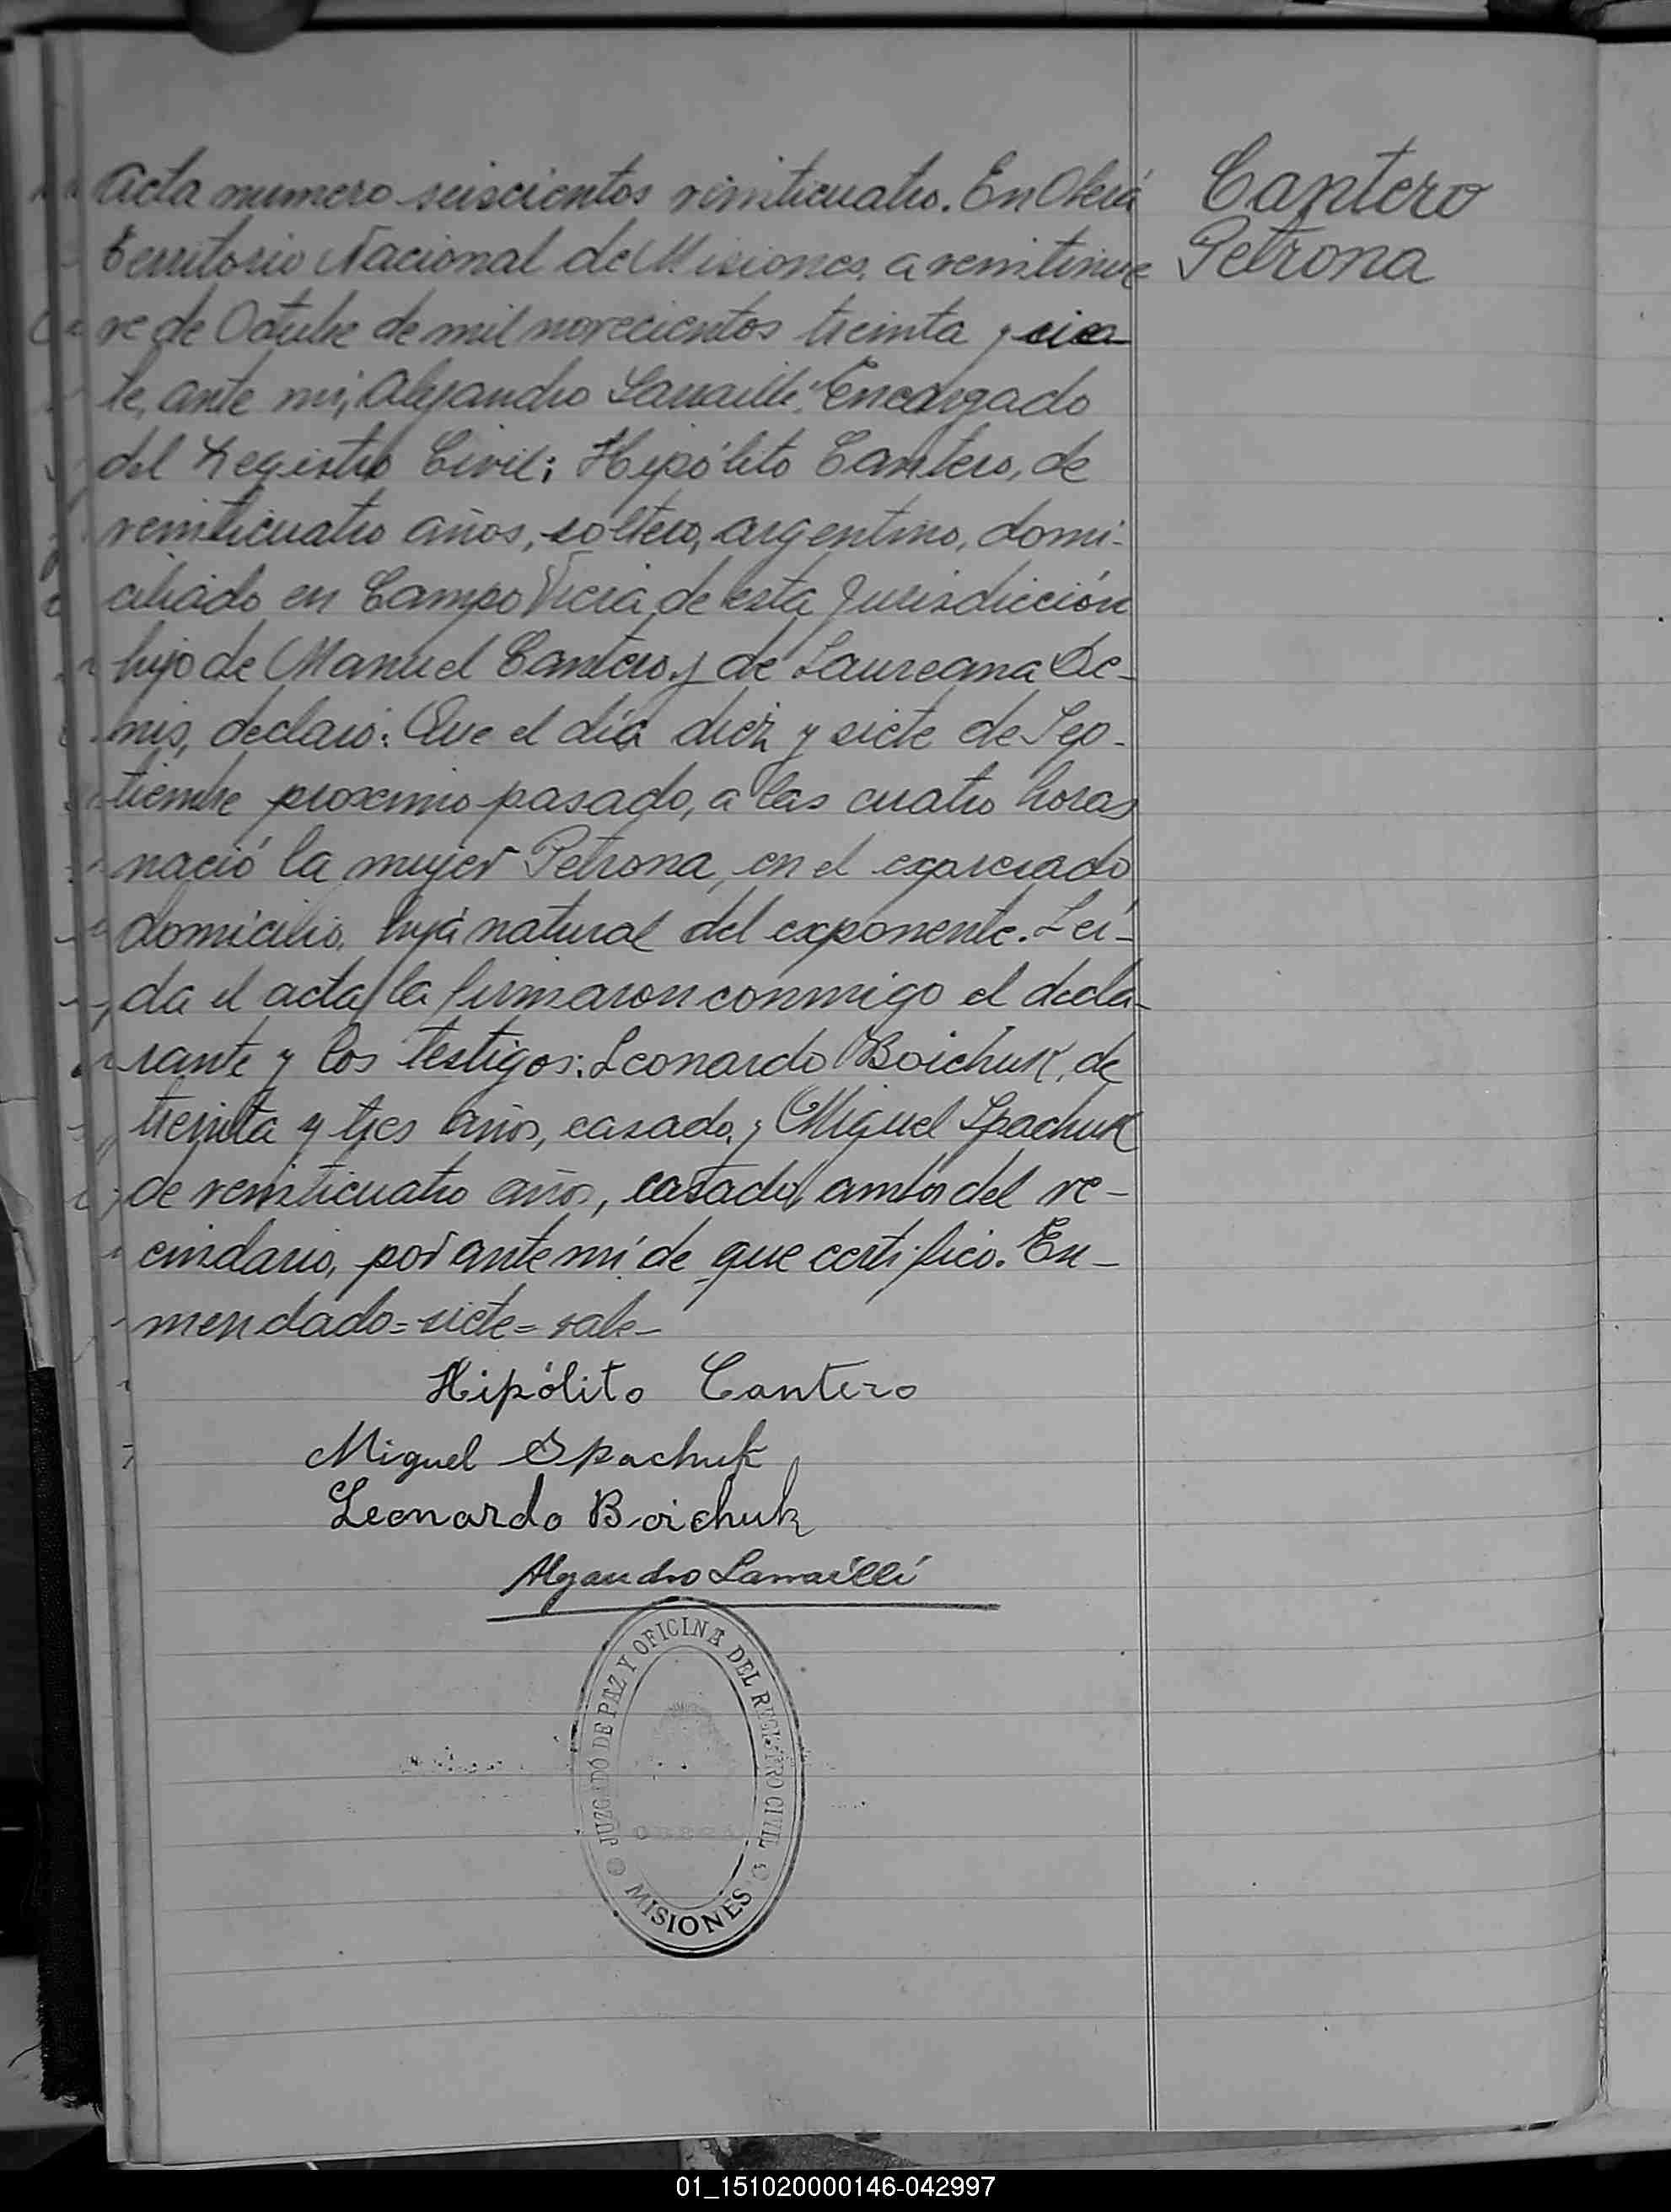 Acta numero seiscientos veinticuatro. En Oberá
Cantero
Territorio Nacional de Misiones, a veintinue
Petrona
ve de Octubre de mil novecientos treinta y sie-
te, ante mi, Alejandro Encargado
del Registro Civil; Hipólito Cantero, de
veinticuatro años, soltero, argentino, domi-
ciliado en Campo Viera, de esta Jurisdicción
hijo de Manuel Cantero y de Laureana
nis, declaró: Que el día diez y siete de Sep-
tiembre proximo pasado, a las cuatro horas
nació la mujer Petrona, en el expresado
domicilio, hija natural del exponente. Leí-
da el acta, la firmaron conmigo el decla-
rante y los testigos: Leonardo Boichuk, de
treinta y tres años, casado, y Miguel Spachuk
de veinticuatro años, casado, ambos del ve-
cindario, por ante mí de que certifico. En-
mendado=siete=vale-
Hipólito Cantero
Miguel Spachuk
Leonardo Boichuk
Alejandro
JUZGADO DE PAZ Y OFICINA DEL REGISTRO CIVIL
MISIONES
01_151020000146-042997